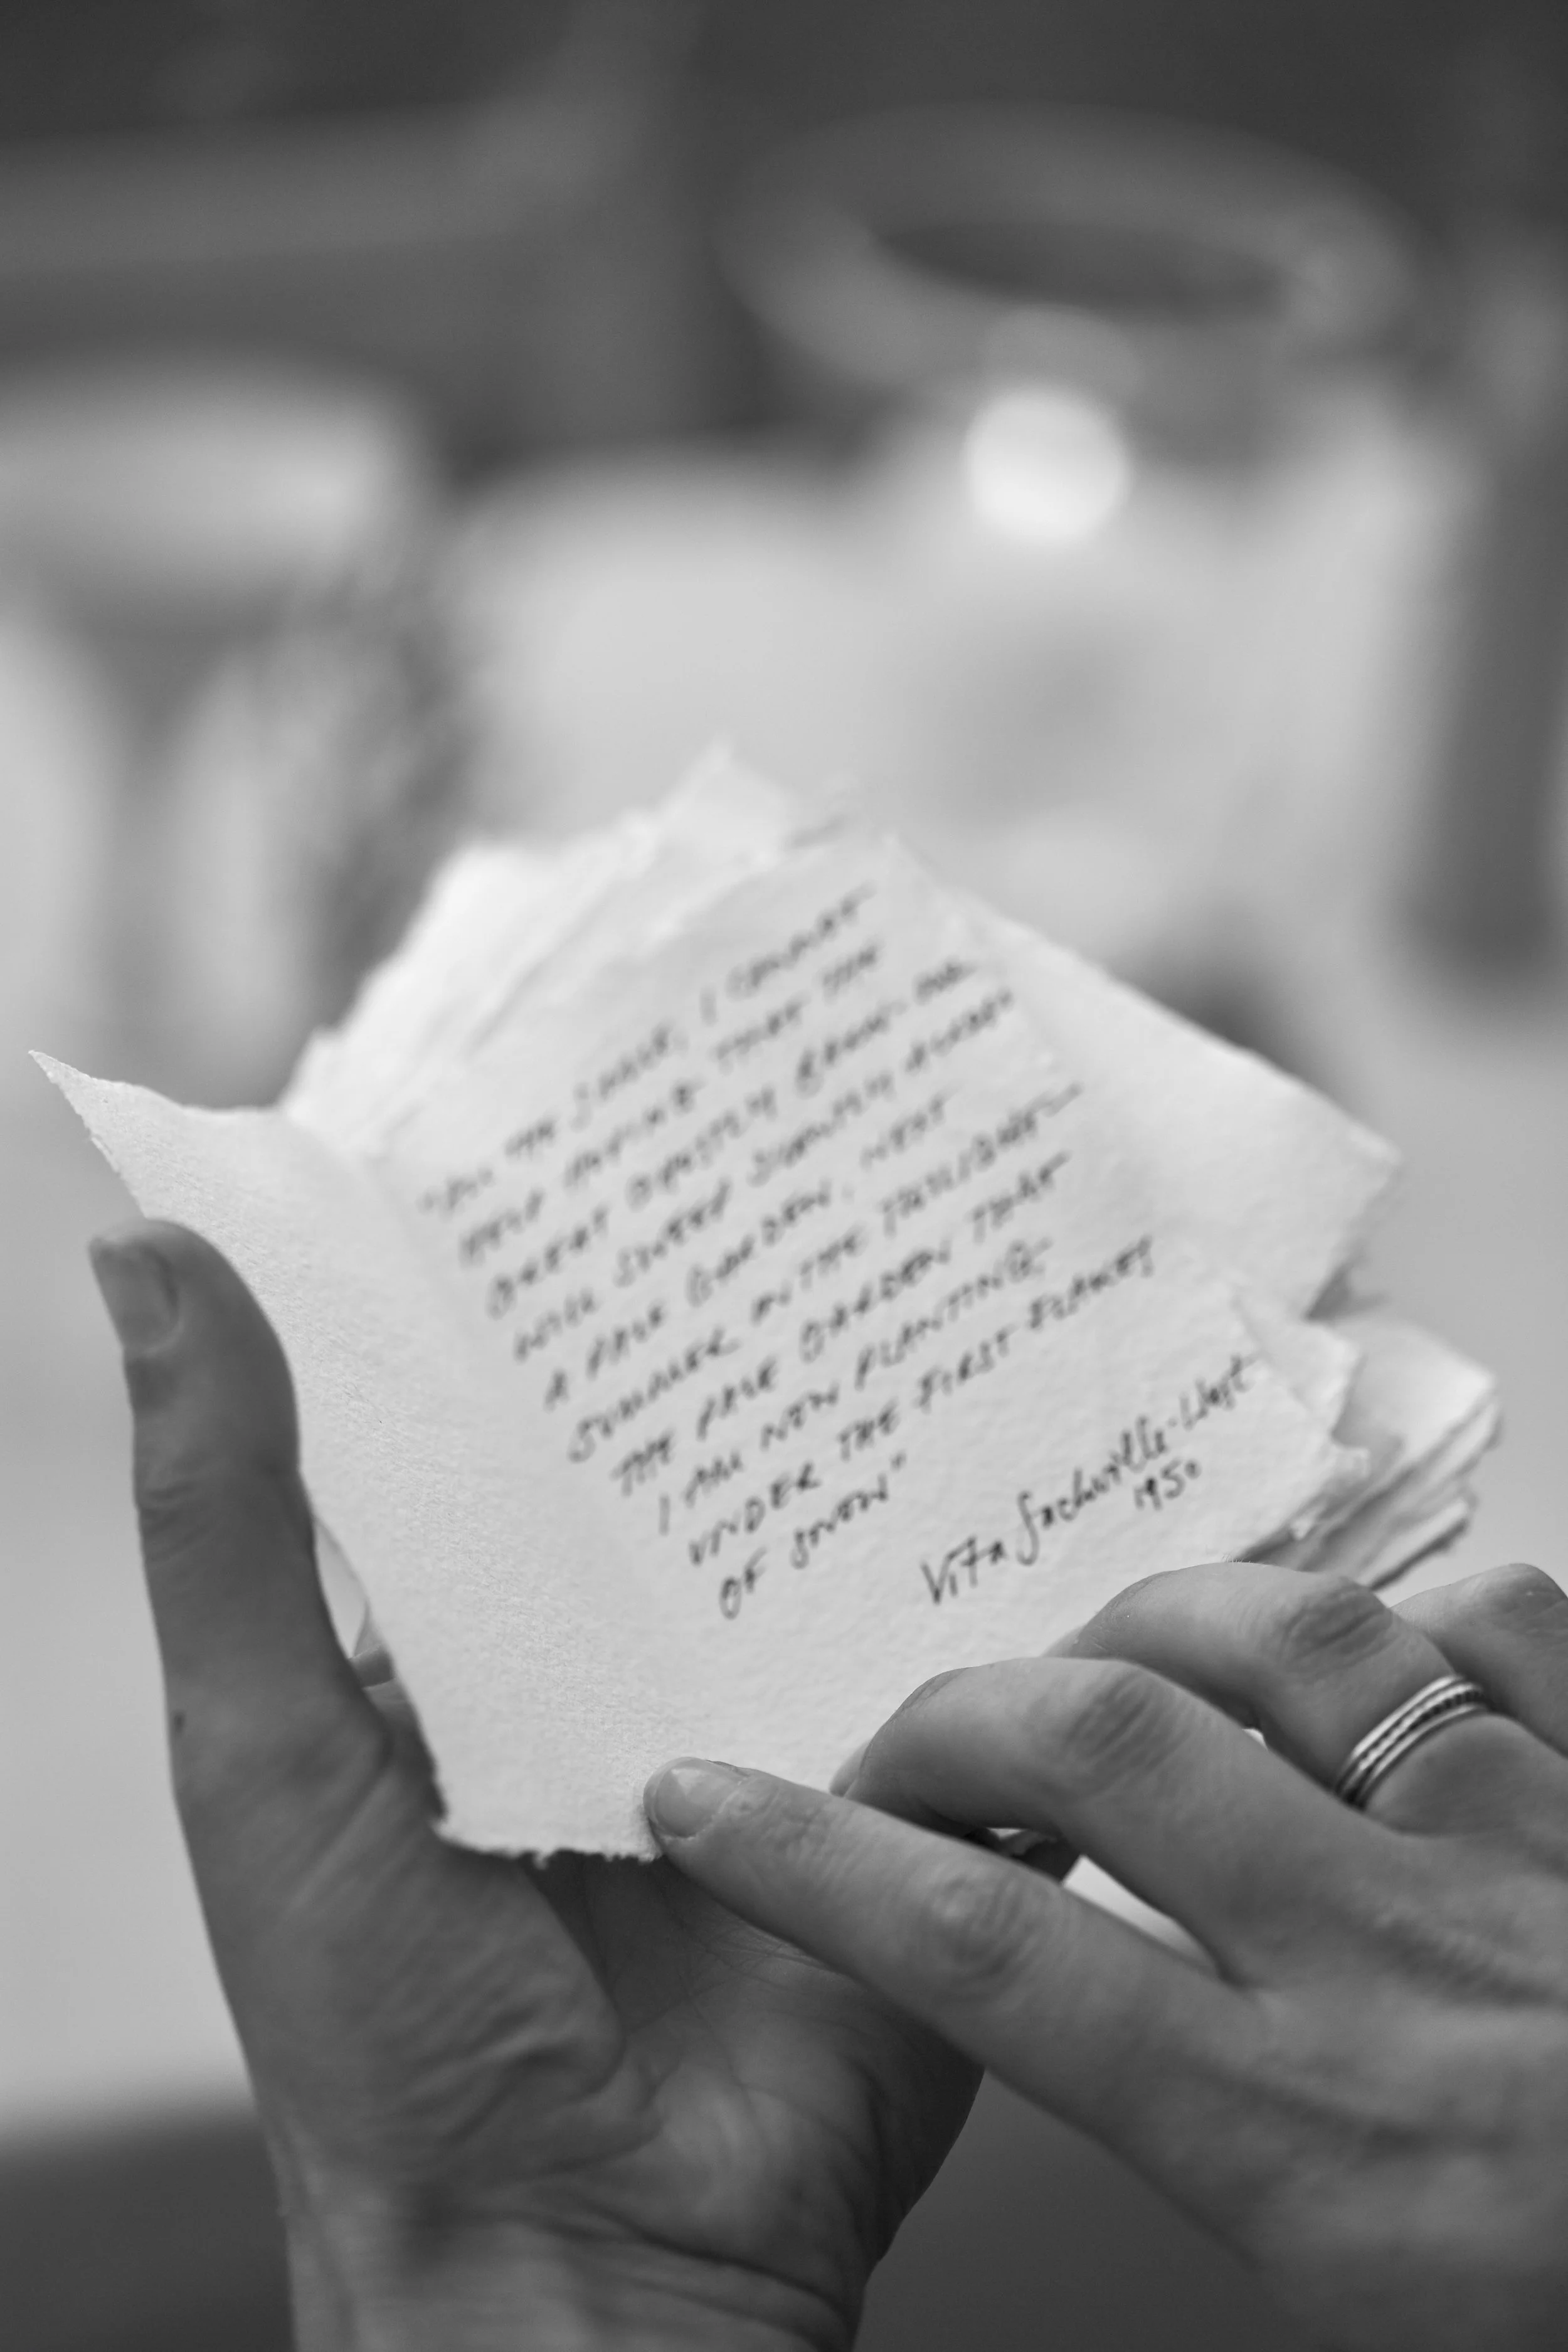 "ALL THE SAME, I CANNOT
HELP HOPING THAT THE
GREAT GHOSTLY BARN-OWL
WILL SWEEP SILENTLY ACROSS
A PALE GARDEN, NEXT
SUMMER IN THE TWILIGHT—
THE PALE GARDEN THAT
I AM NOW PLANTING,
UNDER THE FIRST FLAKES
OF SNOW"
Vita Sackville-West
1950